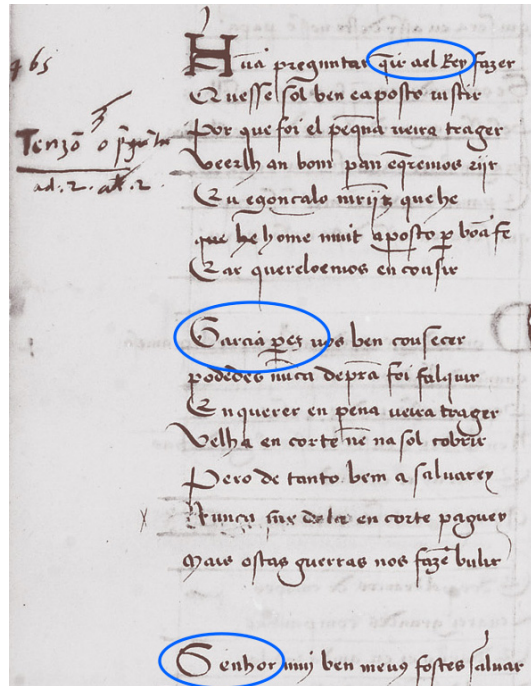 465
Hũa preguntar q̃ir ael Rey fazer
Quesse sol ben eaposto uistir
Tenzõ
Por que foi el peq̃na ueira trager
ad. 2. at. 2
ueerlh an bom pan eq̃remos rijr
Eu egonçalo
que he
que he home muit aposto p̱ bõa fe
Ear en cousir
Garcia p̱es uos ben cousecer
podedes nũca depra foi falquir
En querer en pena ueira trager
Velha en corte nẽ na sol cobrir
Pero de tanto bem a saluarey
Nunca en corte paguey
Mais ostas guerras nos fazẽ bulir
Senhor muj ben meuos fostes saluar